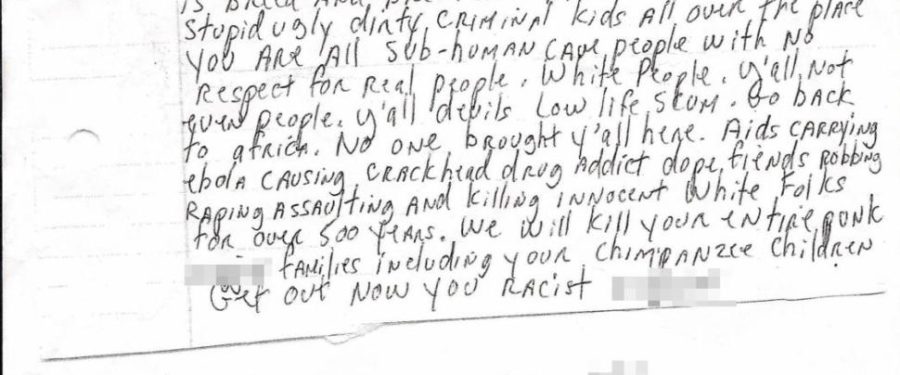 stupid ugly dirty CRIMINAL kids All over the place
You ARE All Sub-human CAVE people with NO
Respect for Real people. White People. Y'all Not
even people. Y'all devils Low life Scum. Go back
to africa. No one brought Y'all here. Aids CARRYing
ebola CAUSing CRACKhead drug Addict dope fiends Robbing
RAPing ASSAUlting AND Killing INNOCENT White Folks
for over 500 YEARS. We Will Kill your entire punk
families including your Chimpanzee Children
Get out Now You RACIST